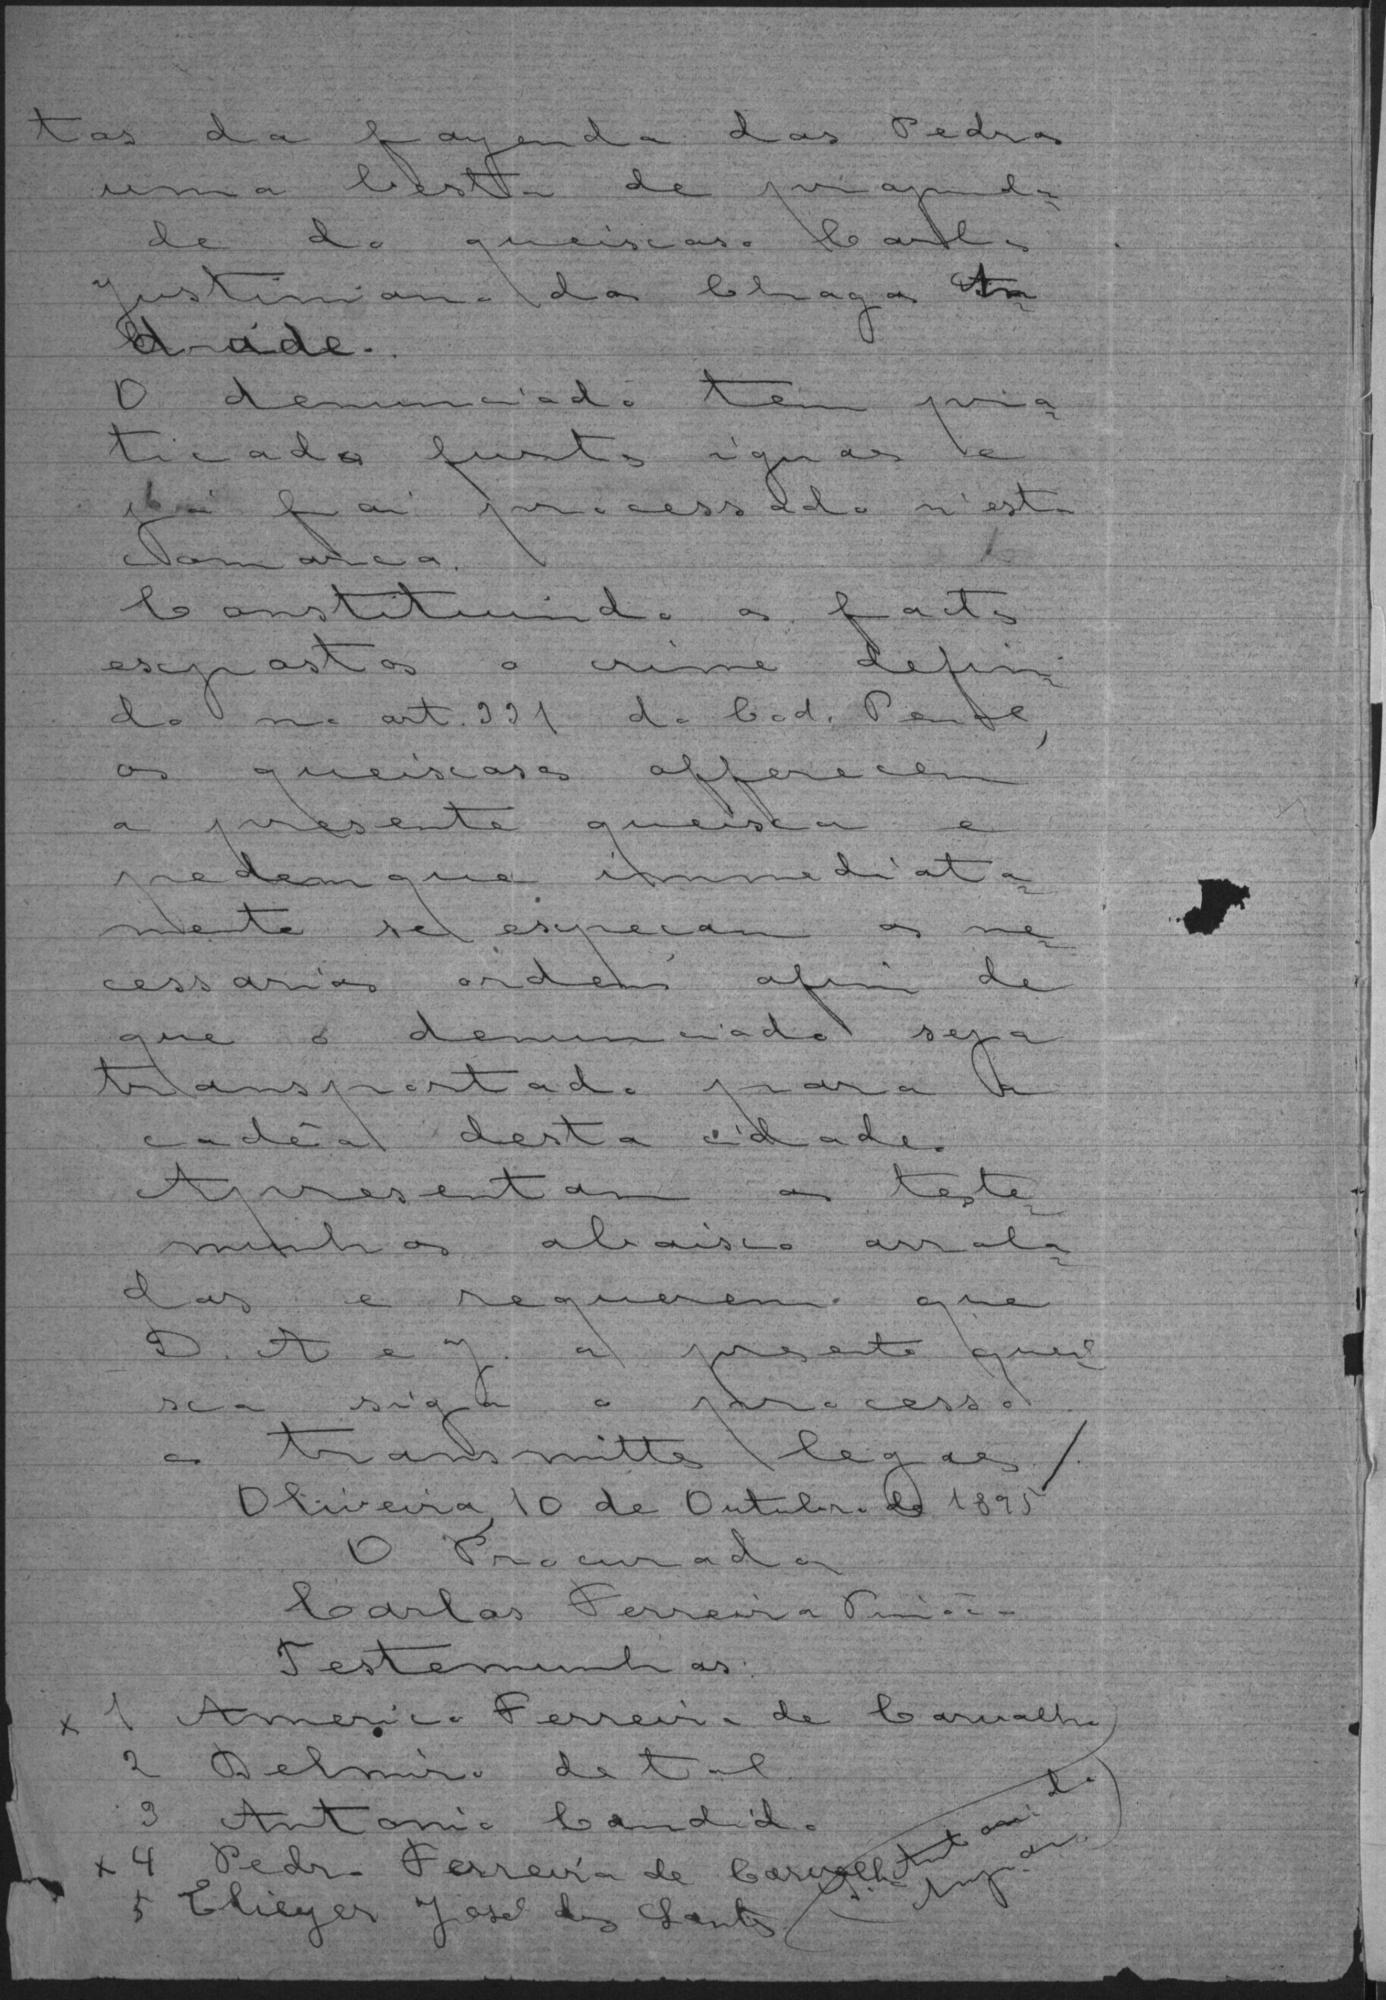 tas da fazenda das Pedras
uma besta de proprieda-
de do queixoso Carlos
Justiniano das Chagas An-
drade.
O denunciado tem pra-
ticado furtos iguaes e
já foi processado n'esta
Comarca.
Constituindo os factos
expostos o crime defini-
do no art. 331 do Cod. Penal,
os queixosos offerecem
a presente queixa e
pedem que immediata-
mente se expeçam as ne-
cessarias ordens afim de
que o denunciado seja
transportado para a
cadêa desta cidade.
Apresentam as teste-
munhas abaixo arrola-
das e requerem que
D. A e J. a presente quei-
xa siga o processo
os transmittes legaes
Oliveira, 10 de Outubro de 1895
O Procurador
Carlos Ferreira
Testemunhas:
x 1 Americo Ferreira de Carvalho
2 Belmiro de tal
3 Antonio Candido
x 4 Pedro Ferreira de Carvalho
5 Elieyer José dos Santos